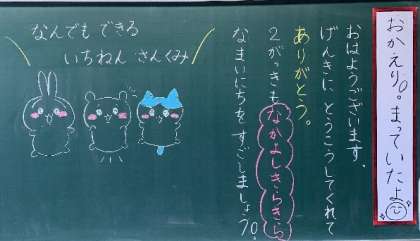 おかえり。まっていたよ
おはようございます。
げんきに とうこうしてくれて
ありがとう。
2がっきも なかよしきらきら
なまいにちを すごしましょう。
なんでも できる
いちねん さんくみ